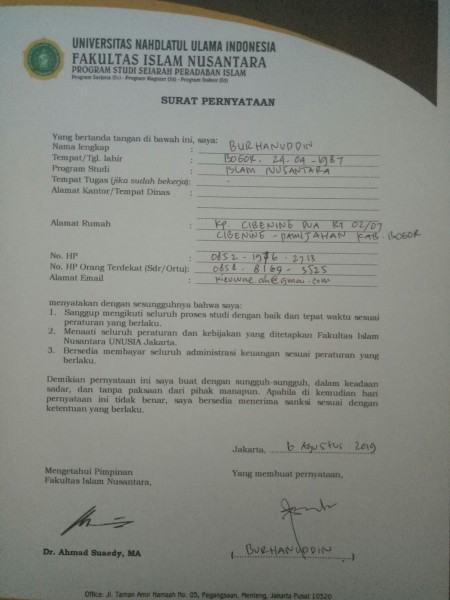 UNIVERSITAS NAHDLATUL ULAMA INDONESIA
FAKULTAS ISLAM NUSANTARA
PROGRAM STUDI SEJARAH PERADABAN ISLAM
Program Sarjana (S1) - Program Magister (S2) - Program Doktor (S3)
SURAT PERNYATAAN
Yang bertanda tangan di bawah ini, saya:
Nama lengkap : BURHANUDDIN
Tempat/Tgl. lahir : BOGOR. 24-09-1987
Program Studi : ISLAM NUSANTARA
Tempat Tugas (jika sudah bekerja): -
Alamat Kantor/Tempat Dinas :
Alamat Rumah : KP. CIBENING DUA RT 02/07
CIBENING - PAMIJAHAN KAB. BOGOR
No. HP : 0852-1976-2713
No. HP Orang Terdekat (Sdr/Ortu): 0858-8169-3525
Alamat Email :
menyatakan dengan sesungguhnya bahwa saya:
1. Sanggup mengikuti seluruh proses studi dengan baik dan tepat waktu sesuai
peraturan yang berlaku.
2. Menaati seluruh peraturan dan kebijakan yang ditetapkan Fakultas Islam
Nusantara UNUSIA Jakarta.
3. Bersedia membayar seluruh administrasi keuangan sesuai peraturan yang
berlaku.
Demikian pernyataan ini saya buat dengan sungguh-sungguh, dalam keadaan
sadar, dan tanpa paksaan dari pihak manapun. Apabila di kemudian hari
pernyataan ini tidak benar, saya bersedia menerima sanksi sesuai dengan
ketentuan yang berlaku.
Jakarta, 6 Agustus 2019
Mengetahui Pimpinan
Fakultas Islam Nusantara,
Yang membuat pernyataan,
Dr. Ahmad Suaedy, MA
( BURHANUDDIN )
Office: Jl. Taman Amir Hamzah No. 05, Pegangsaan, Menteng, Jakarta Pusat 10320